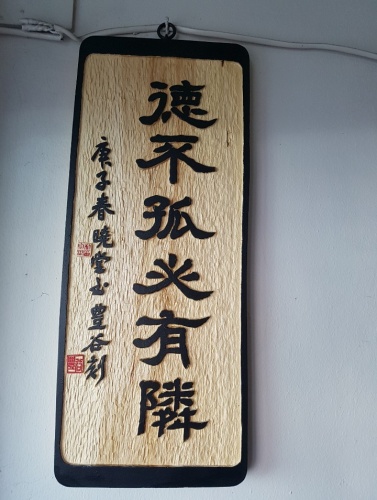 德不孤必有隣
庚子春曉堂書豊谷刻